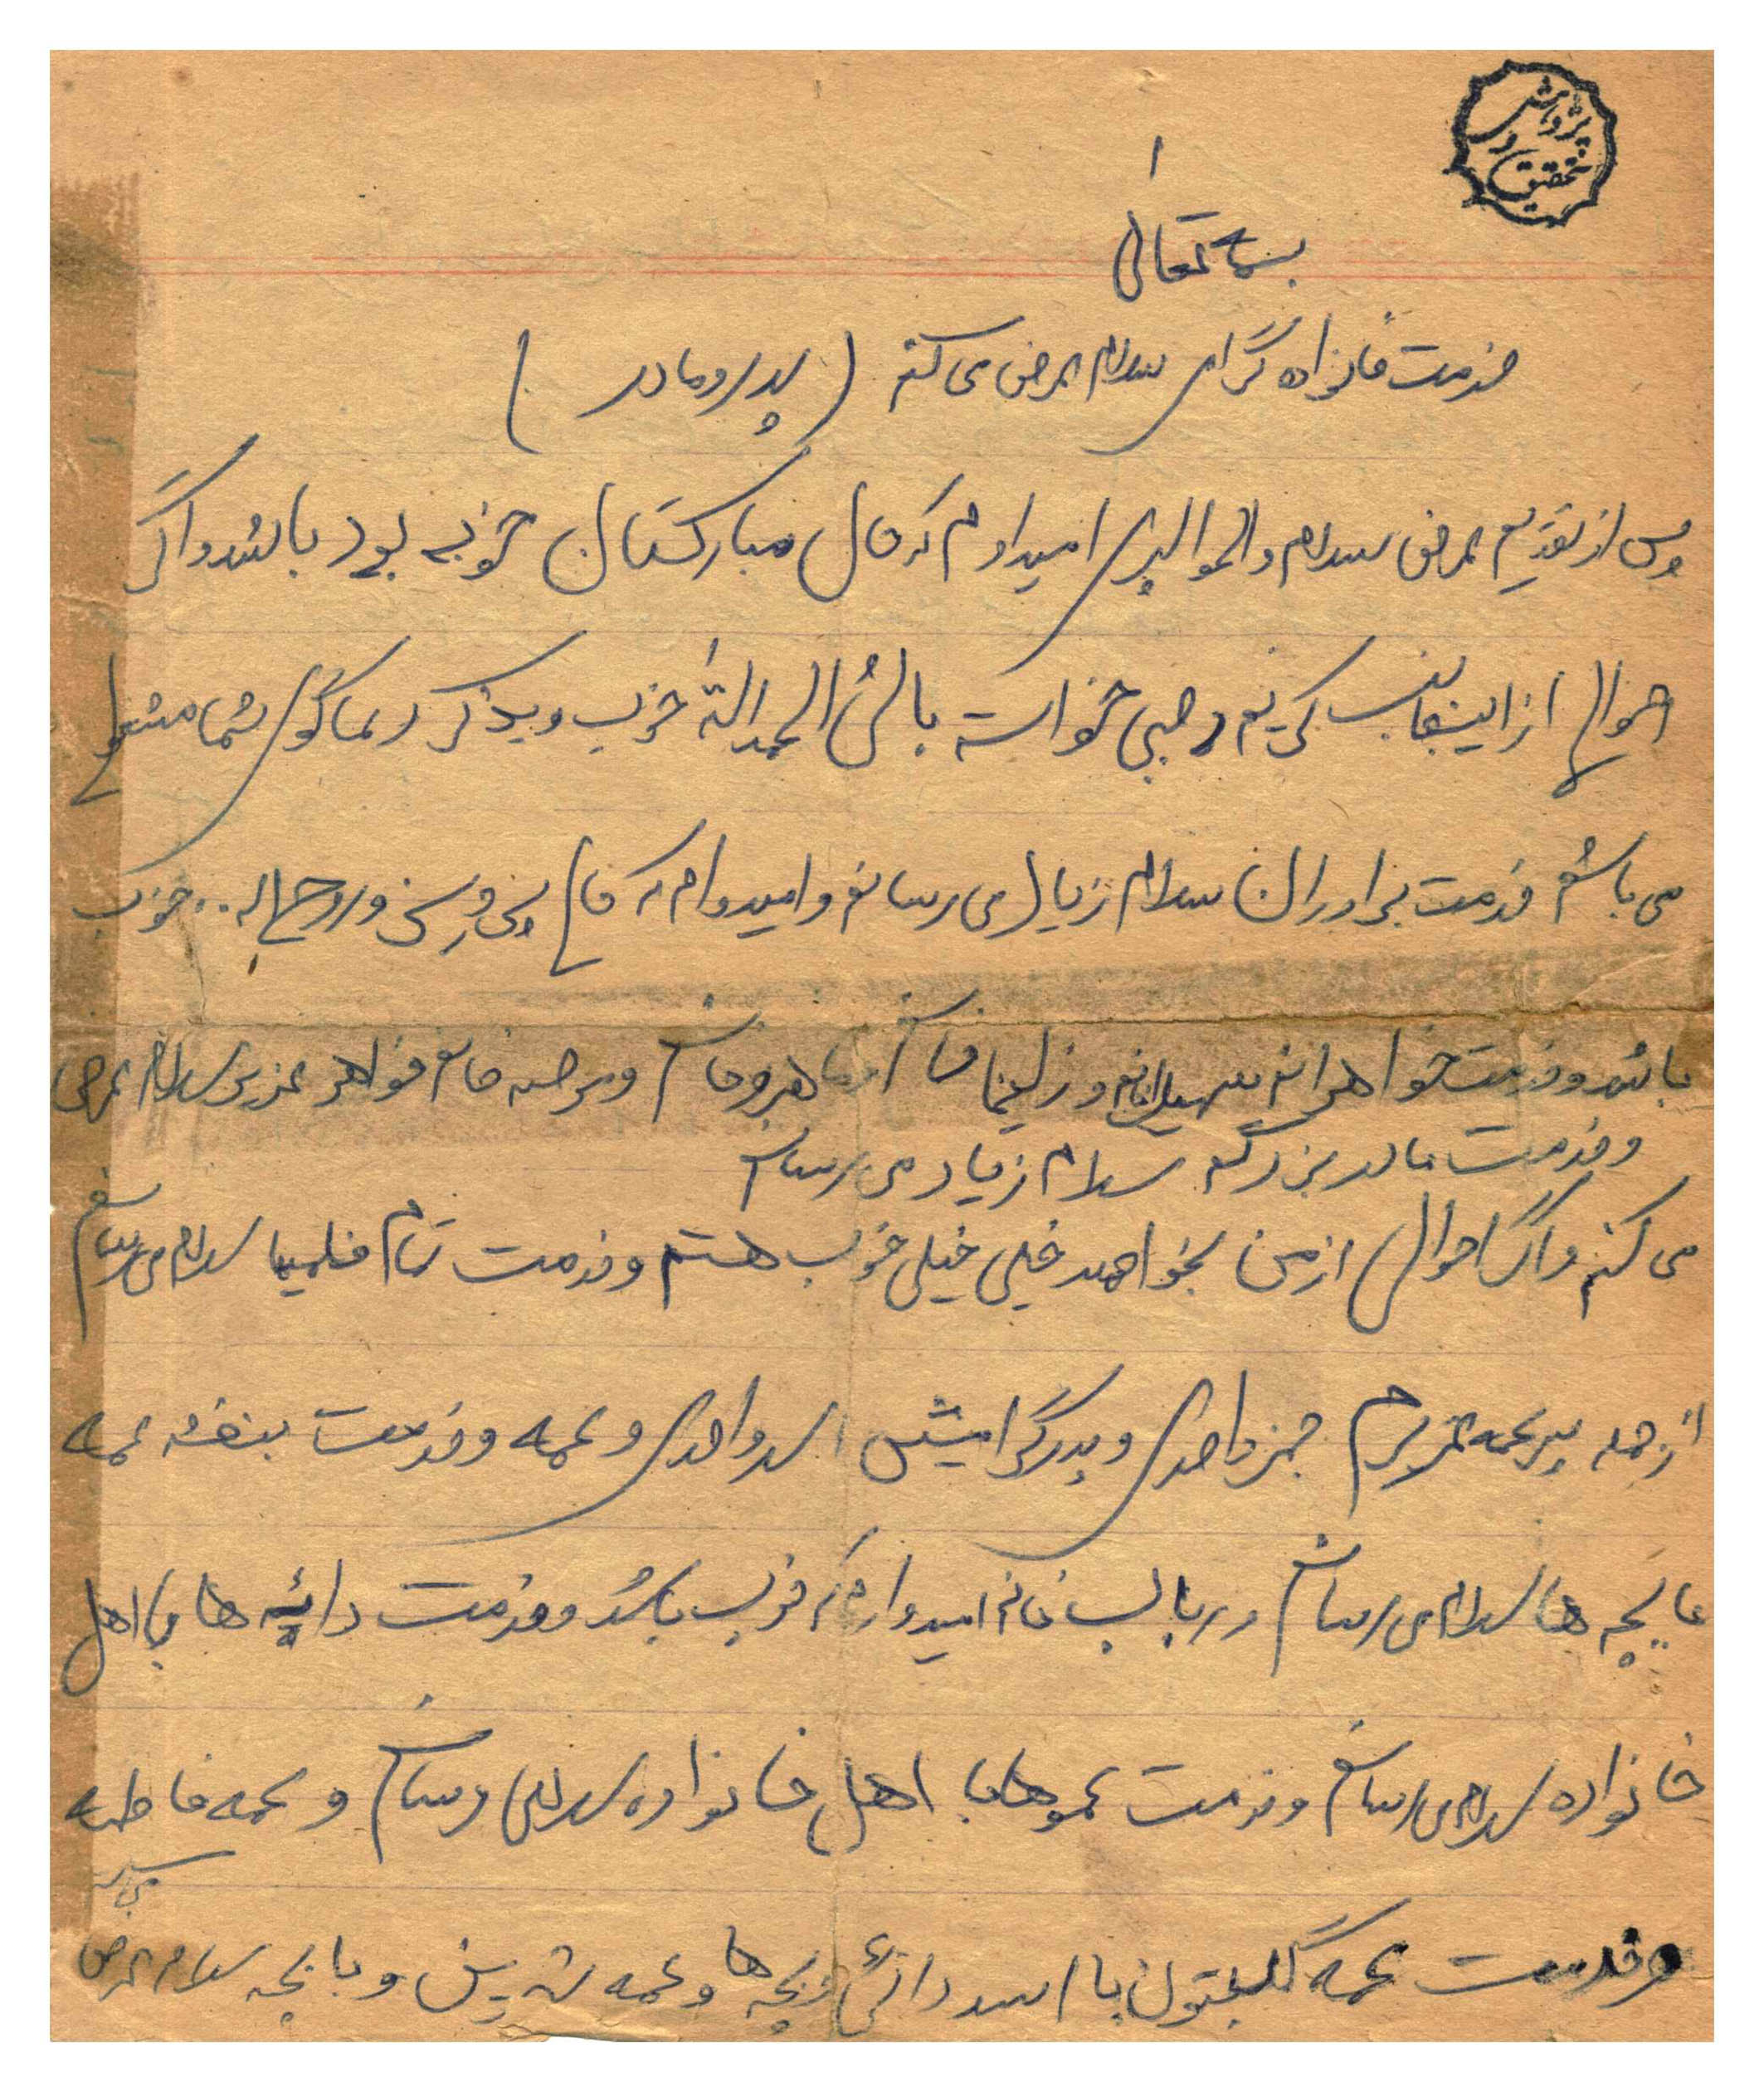 پژوهش
و
تحقیق
۱
بسمه تعالی
خدمت خانواده گرامی سلام عرض می کنم (پدر و مادر)
پس از تقدیم عرض سلام و احوالپرسی امیدارم که حال مبارکتان خوب بود باشد و اگر
احوالی از اینجانب خواسته باش الحمدالله خوب و بدکر دعاگوی شما مشغول
می باشم خدمت برادران سلام زیاد می رسانم و امیدوارم که خوب
باشد و خدمت خواهرانم و زلیخا خانم و خانم خواهر عزیزم سلام عرض
و خدمت مادر بزرگم سلام زیاد می رسانم
می کنم و اگر احوالی از من بخواهید خیلی خیلی خوب هستم و خدمت تمام فامیلها سلام می رسانم
از جمله پسر عمه عزیزم واحدی و پدر گرامیش اسد واحدی و عمه و خدمت بنفشه عمه
با بچه ها سلام می رسانم خانم امیدوارم که خوب باشد و خدمت دائیه ها با اهل
خانواده سلام می رسانم و خدمت عموها با اهل خانواده سلام می رسانم و عمه فاطمه
و خدمت عمه با اسد دائی بچه ها و عمه و با بچه سلام عرض